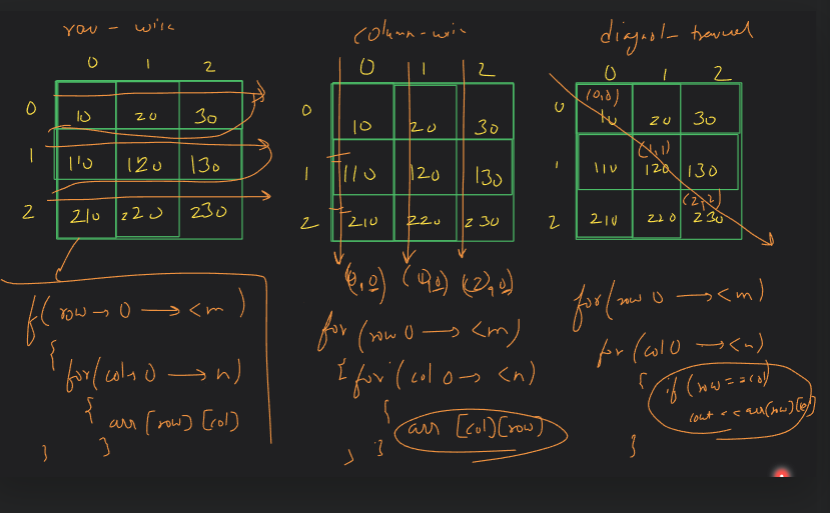 row - wise
0 1 2
0 10 20 30
1 110 120 130
2 210 220 230
f( row → 0 → < m )
{
for( col → 0 → n )
{
arr [row] [col]
}
}
column - wise
0 1 2
0 10 20 30
1 110 120 130
2 210 220 230
(0,0) (1,0) (2,0)
for (row 0 → < m)
{ for ( col 0 → < n)
{
arr [col][row]
}
}
diagnol - travel
0 1 2
(0,0)
0 10 20 30
(1,1)
1 110 120 130
(2,2)
2 210 220 230
for( row 0 → < m )
for (col 0 → < n)
{ if ( row == col)
cout << arr[row][col]
}